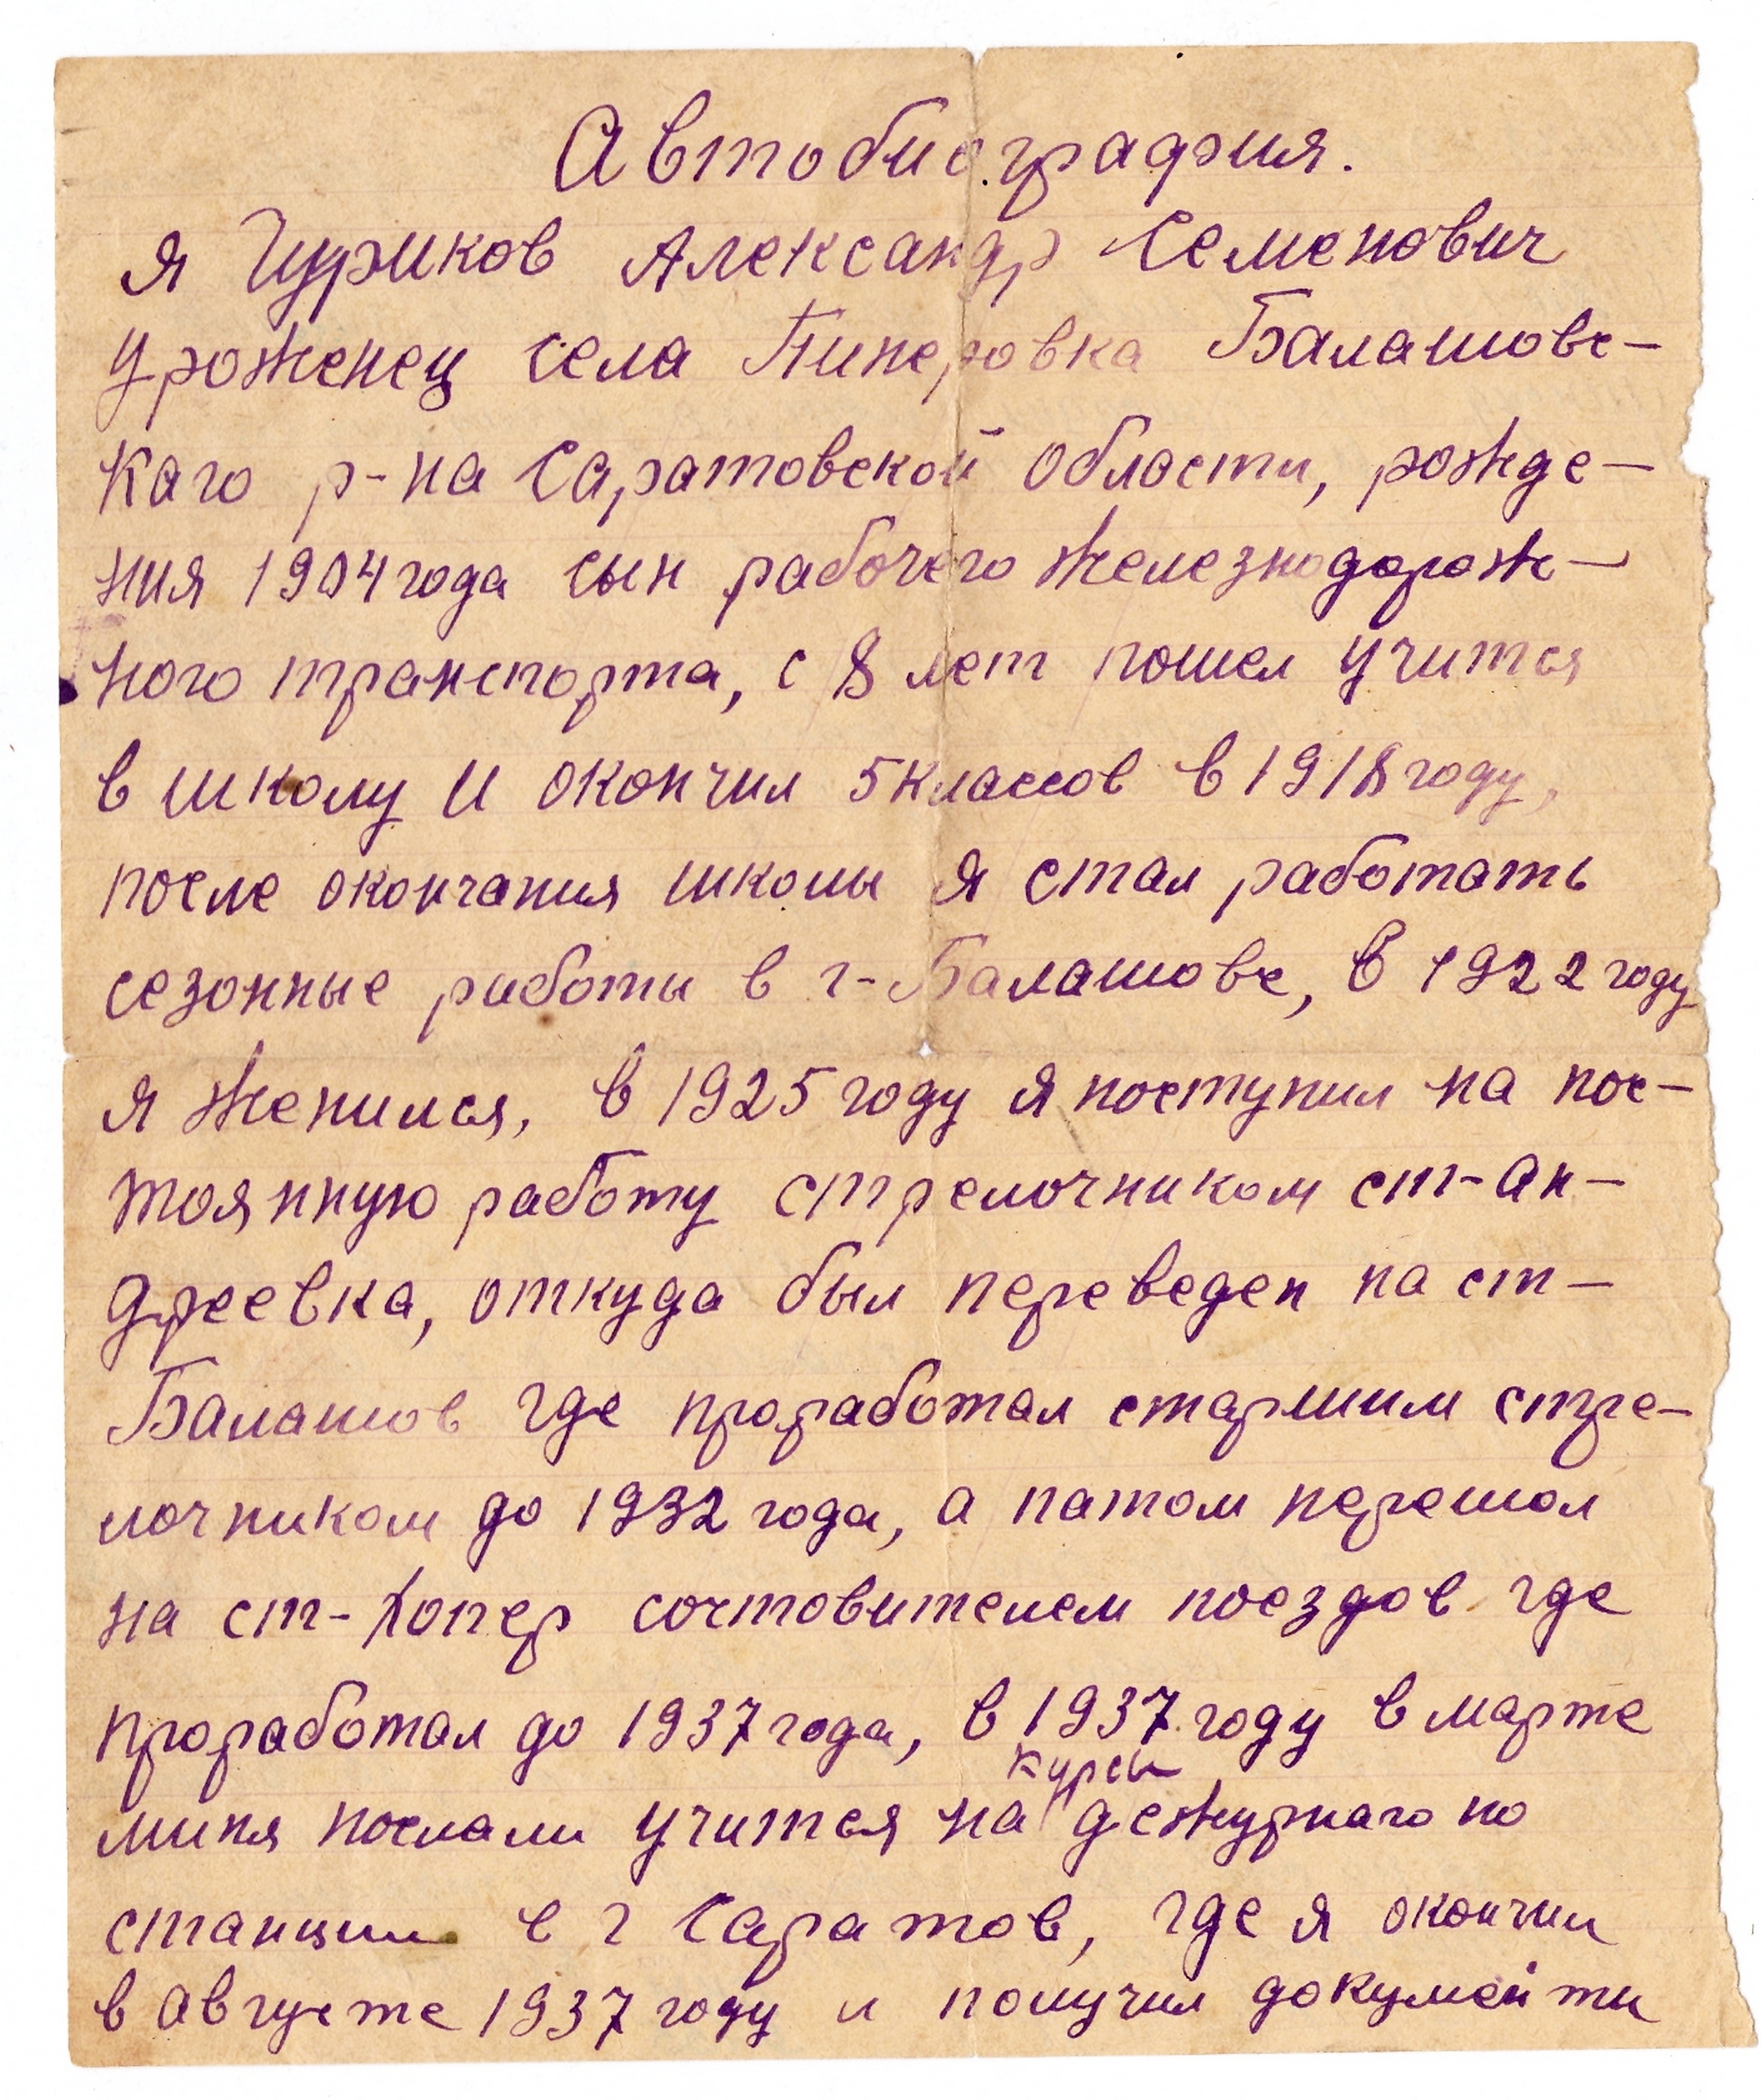 Автобиография.
я Чуриков Александр Семенович
уроженец села Пинеровка Балашовс-
каго р-на Саратовской области, рожде-
ния 1904 года сын рабочего железнодорож-
ного транспорта, с 8 лет пошел учится
в школу и окончил 5 классов в 1918 году,
после окончания школы я стал работать
сезонные работы в г-Балашове, в 1922 году
я женился, в 1925 году я поступил на пос-
тоянную работу стрелочником ст-Ан-
дреевка, откуда был переведен на ст-
Балашов где проработал старшим стре-
лочником до 1932 года, а патом перешол
на ст-Хопер состовителем поездов где
проработал до 1937 года, в 1937 году в марте
курсы
миня послали учится на дежурнаго по
станции в г Саратов, где я окончил
в августе 1937 году и получил документы